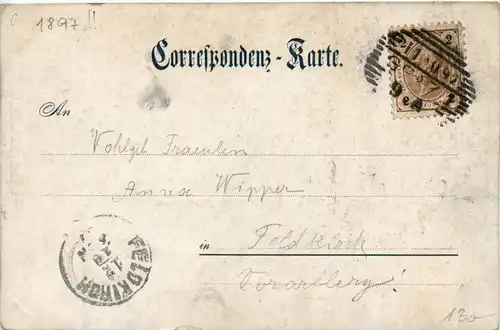 1897!!
Correspondenz-Karte.
2
2 2
An
Wohlgeb Fraeulein
Anna Wipper
in Feldkirch
Vorarlberg!
FELDKIRCH
130